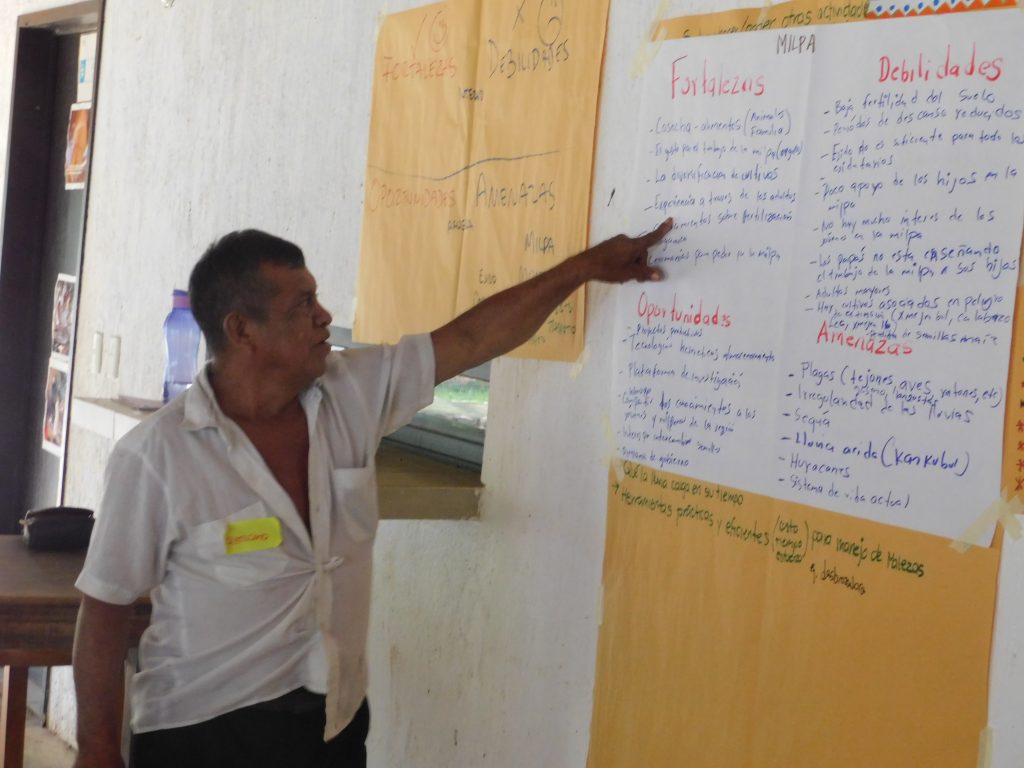 FORTALEZAS
DEBILIDADES
OPORTUNIDADES
AMENAZAS
MILPA
otras actividade
MILPA
Fortalezas
- Cosecha - alimentos (Animales
Familia)
- El gusto por el trabajo de la milpa
- La diversificación de cultivos
- Experiencia a traves de los adultos
sobre fertilización
para pedir la milpa
Debilidades
- Baja fertilidad del suelo
- Periodos de descanso reducidos
- Ejido no es suficiente para todo los
ejidatarios
- Poco apoyo de los hijos en la
milpa
- No hay mucho interes de los
jóvenes en la milpa
- Los papás no esta enseñando
el trabajo de la milpa a sus hijos
- Adultos mayores
- Hay cultivos asociados en peligro
de extinción (xmejen bul, calabaza
perdida de semillas maíz
Oportunidades
- Proyectos productivos
- Tecnologías hermeticas almacenamiento
- Plataforma de investigación
- Compartir los conocimientos a los
jovenes y milperos de la región
- intercambio semillas
- programa de gobierno
Amenazas
- Plagas (tejones, aves, ratones, etc)
langostas
- Irregularidad de las lluvias
- Sequía
- Lluvia acida (Kankubul)
- Huracanes
- Sistema de vida actual
- Que la lluvia caiga en su tiempo
→ Herramientas prácticas y eficientes (costo
tiempo
esfuerzo) para manejo de malezas
ej. desbrozadora